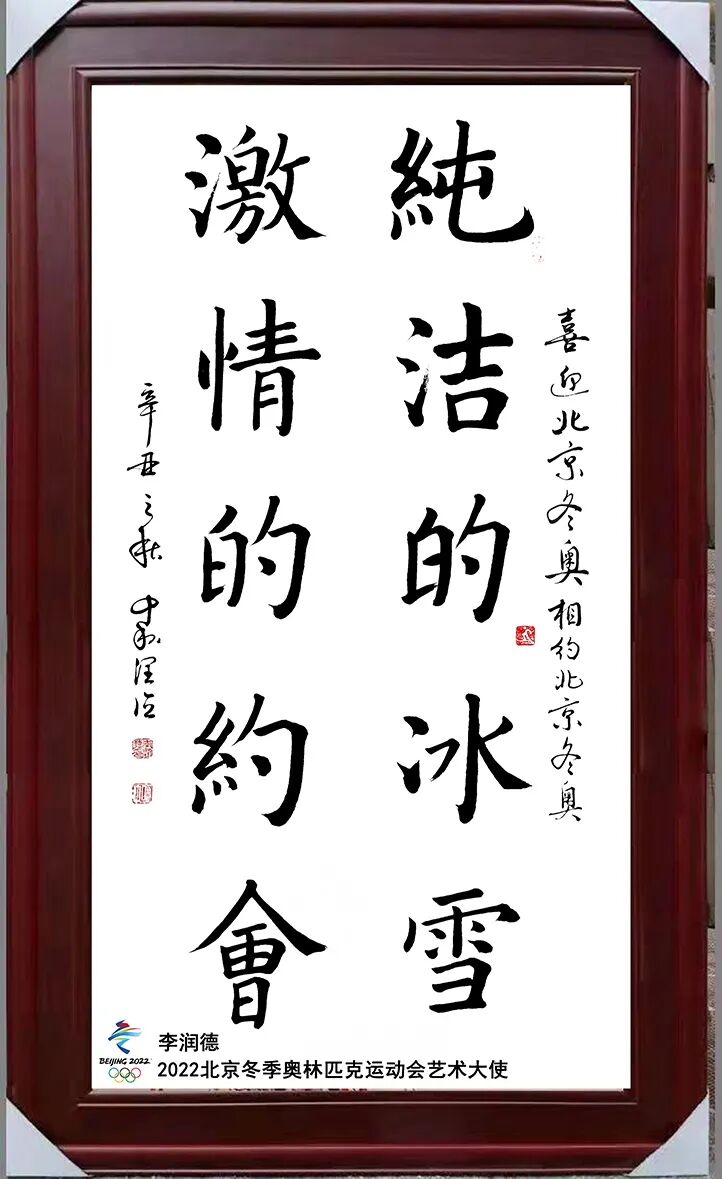 喜迎北京冬奥相约北京冬奥
純洁的冰雪
激情的約會
辛丑之秋 李润德
BEIJING 2022
李润德
2022北京冬季奥林匹克运动会艺术大使